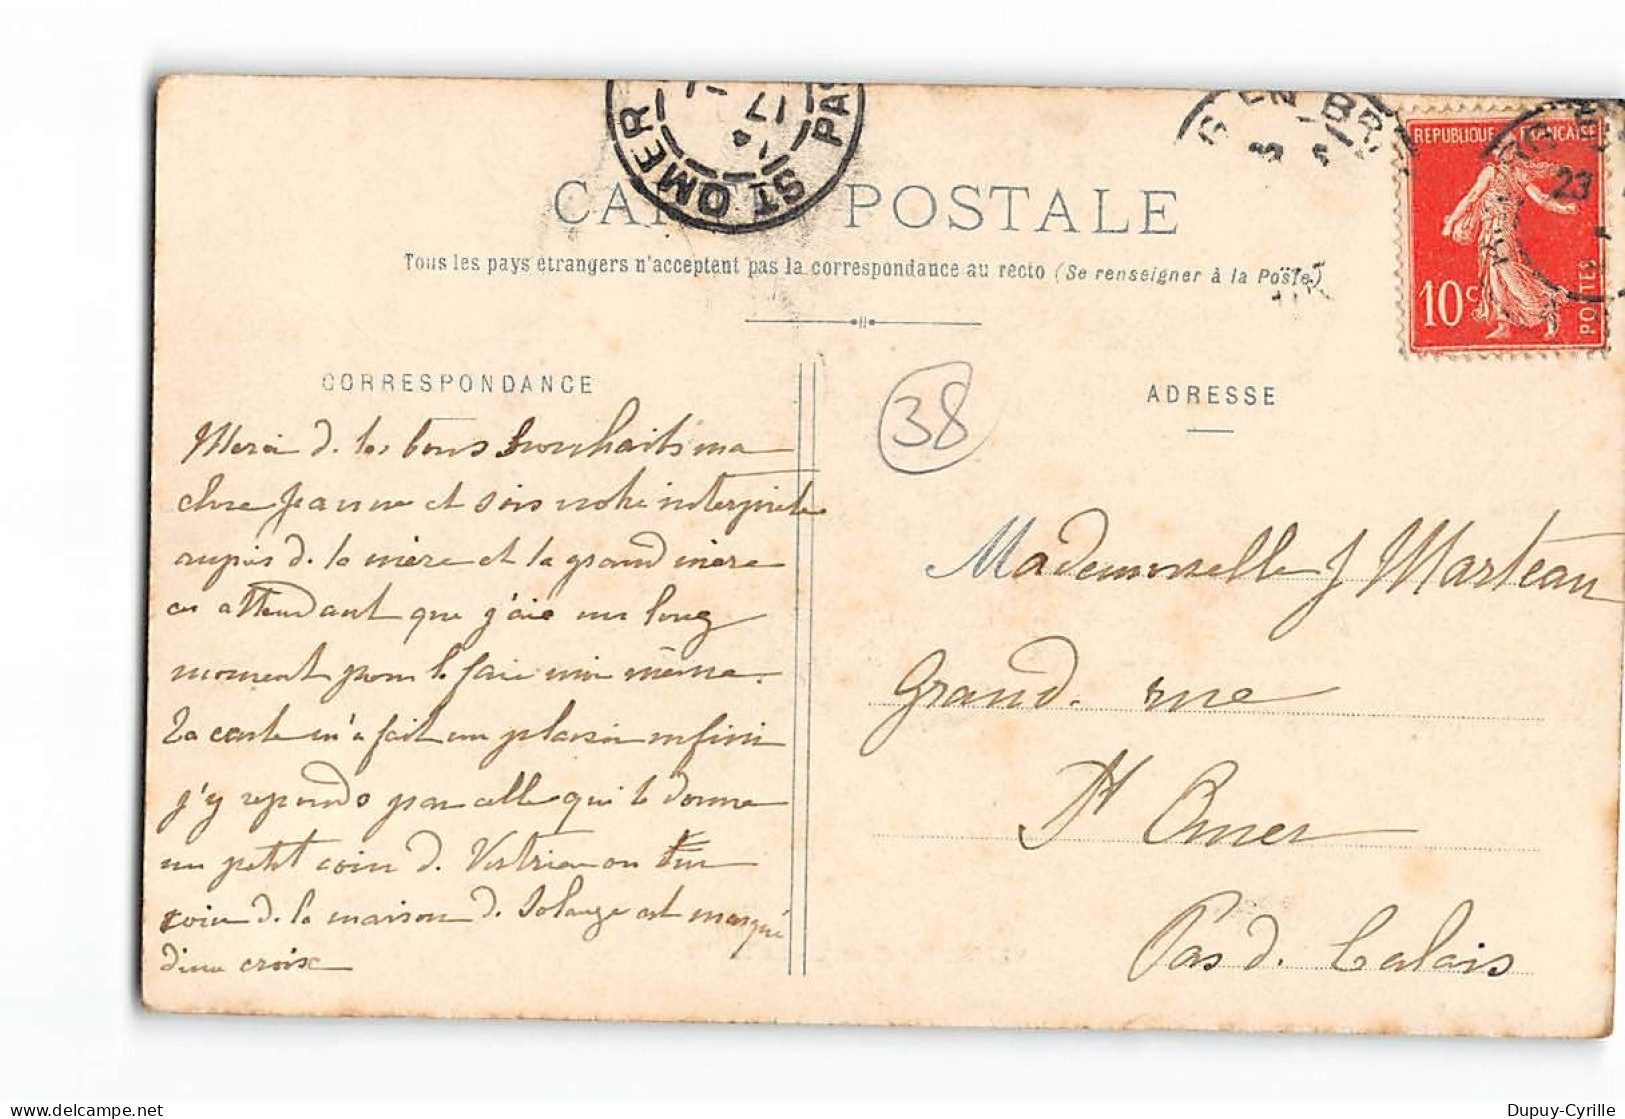 ST OMER
PAS
17
BR
23
CARTE POSTALE
Tous les pays étrangers n'acceptent pas la correspondance au recto (Se renseigner à la Poste)
REPUBLIQUE FRANÇAISE
10c
POSTES
CORRESPONDANCE
Merci de tes bons souhaits ma
chere Jeanne et sois notre interprete
aupis de ta mère et ta grand mère
en attendant que j'aie un long
moment pour le faire moi même.
Ta carte m'a fait un plaisir infini
j'y reponds par celle qui te donne
un petit coin de Vertrieu ou un
coin de la maison de Solange est marqué
d'une croix
38
ADRESSE
Mademoiselle J Marteau
Grand. rue
St Omer
Pas d. Calais
Dupuy-Cyrille